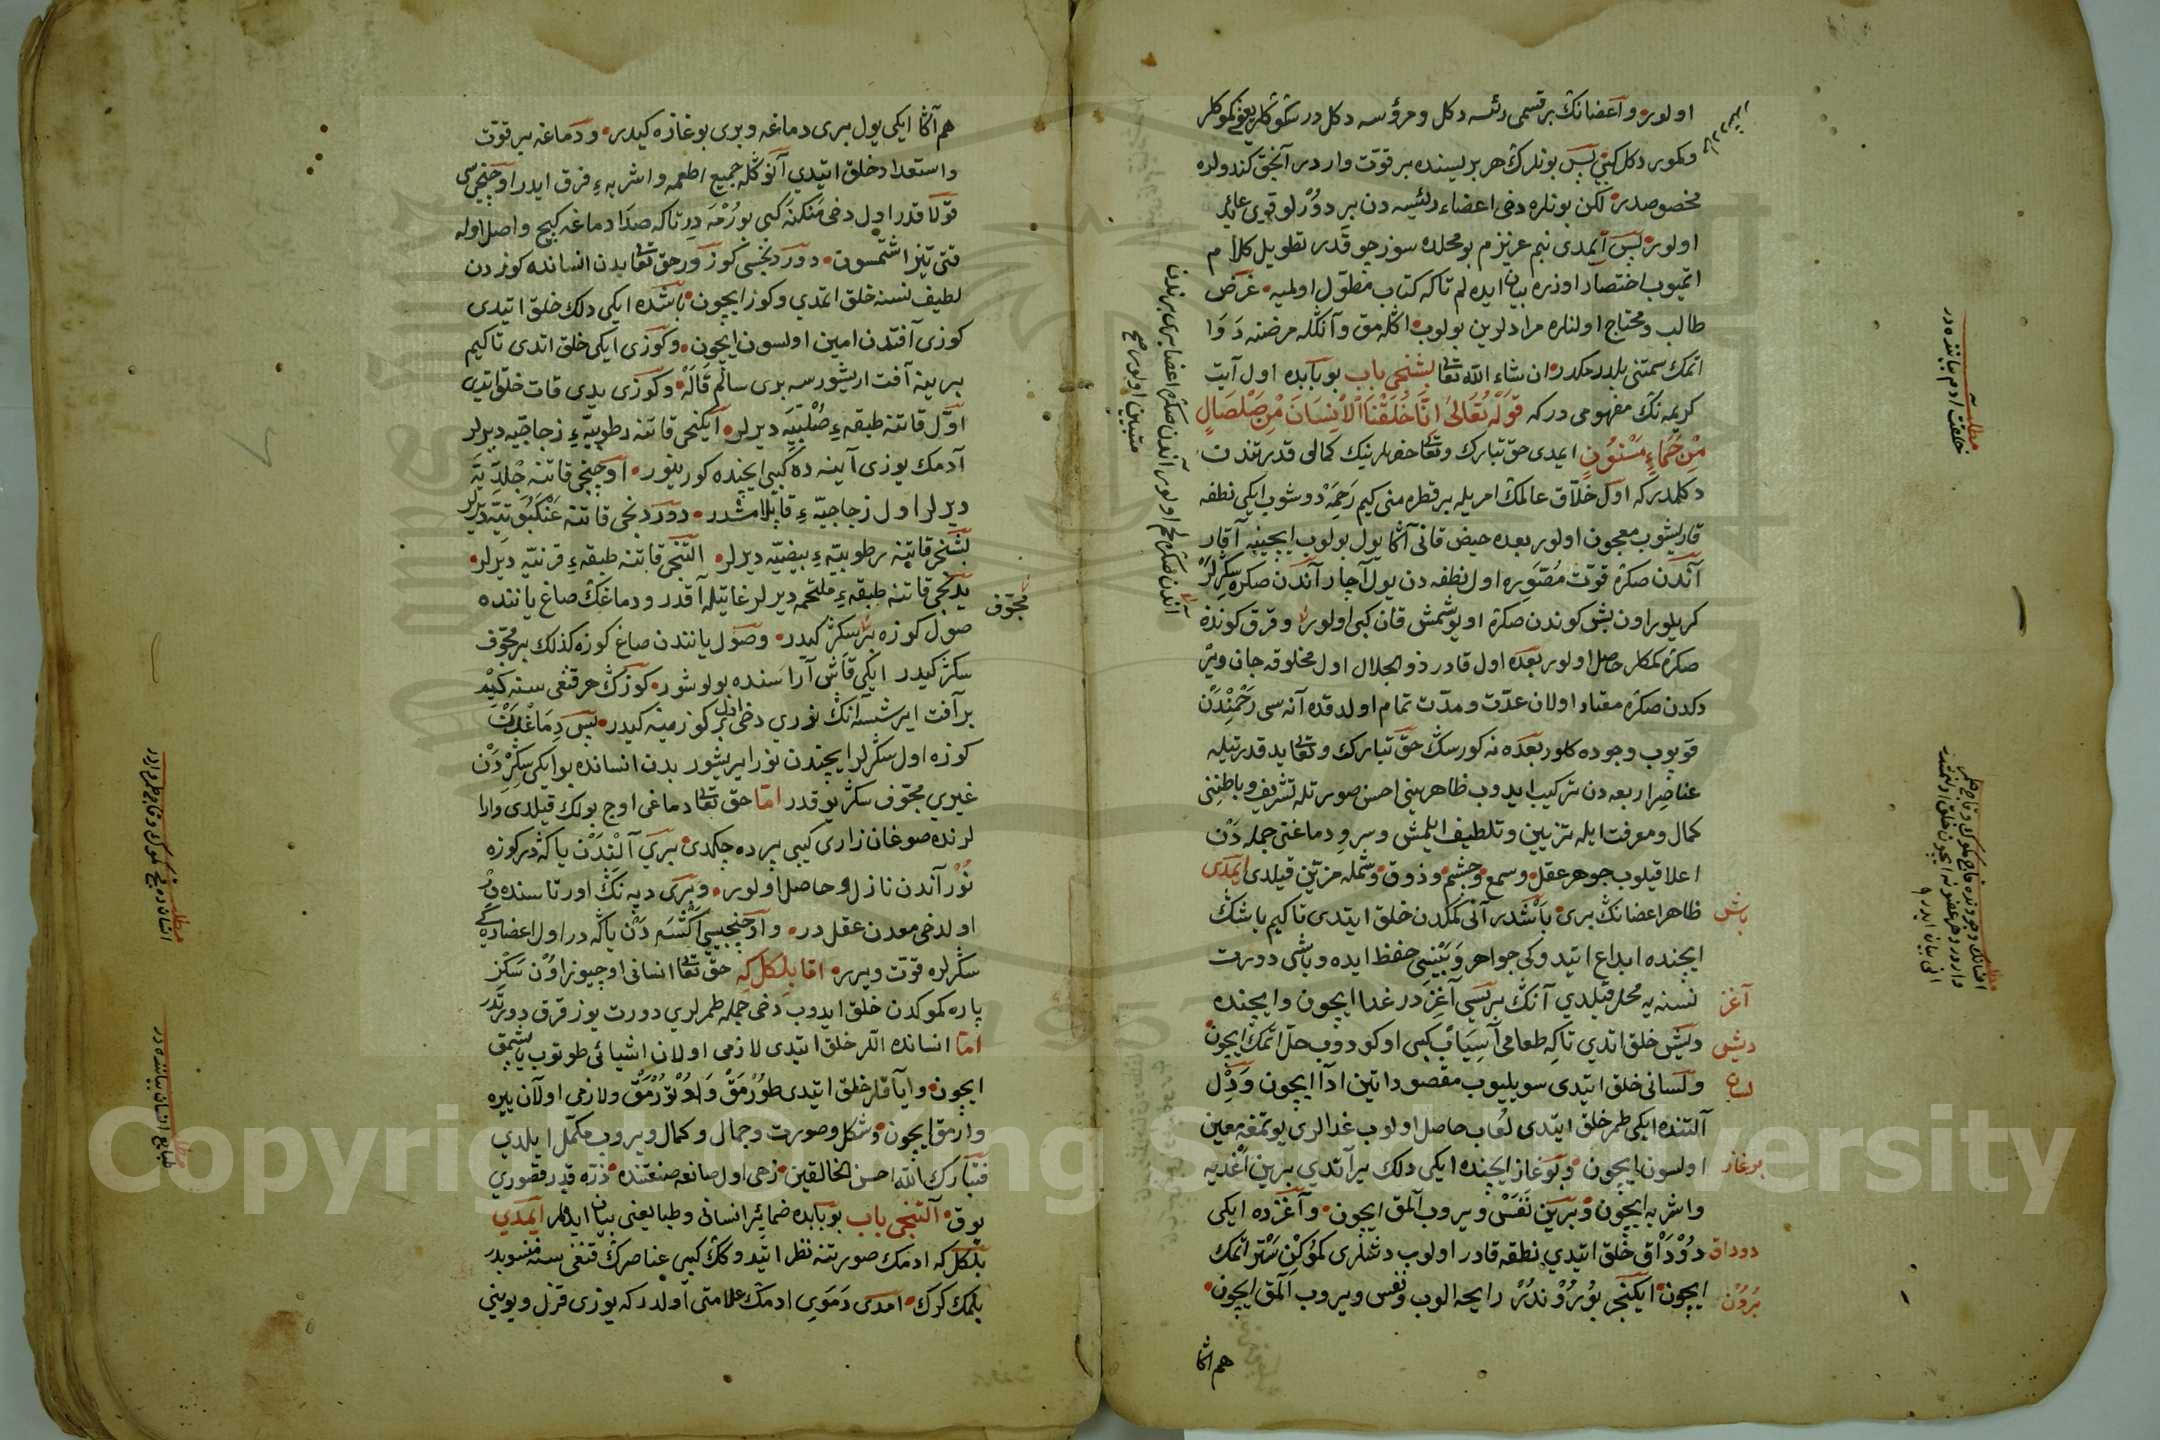 اولور و اعضانڭ بر قسمی رئسه دكل و مرؤسه دكل در شكوكلر يعنی كموكلر
وكموير دكل كبی پس بونلرڭ هر بريسنده بر قوّت واردر آنجق كندولره
مخصوصدر لكن بونلره دخی اعضاء رئيسه دن بر دورلو قوی عايد
اولور پس ايمدی بنم عزيزم بو محلده سوز چوقدر تطويل كلام
اتميوب اختصار اوزره بيان ايده لم تاكه كتاب مطوّل اولميه غرض
طالب و محتاج اولنلره مرادلرين بولوب اڭلمق و آنڭله مرضنه دوا
اتمك سمتنی بلدرمكدر ان شاء الله تعا بشنجی باب بو بابده اول آيت
كريمه نڭ مفهومی در كه قوله تعالی انا خلقنا الانسان من صلصال
من حماء مسنون ايمدی حق تبارك وتعا حضرلرينك كمالی قدرتندن
دكلمدر كه اول خلّاق عالمڭ امريله بر قطره منی كيم رحمه دوشوب ايكی نطفه
قاريشوب معجون اولور بعده حيض قانی آڭا يول بولوب ايچينه آقار
آندن صكره قوّت مصوّره اول نطفه دن يول آچار آندن صكره سڭرلر
كريلور اون بش كوندن صكره اويوشمش قان كبی اولور و قرق كونده
صكره كمكلر حاصل اولور بعده اول قادر ذو الجلال اول مخلوقه جان ويرر
دكدن صكره معتاد اولان عدّت و مدّت تمام اولدقده آنه سی رحمندن
قوپوب وجوده كلور بعده نه كورسڭ حقّ تبارك وتعا يد قدرتيله
عناصر اربعه دن تركيب ايدوب ظاهرينی احسن صورتله تشريف و باطننی
كمال و معرفت ايله تزيين و تلطيف ايلمش و سر و دماغنی جمله دن
اعلا قيلوب جوهر عقل و سمع و چشم و ذوق و شمله مزيّن قيلدی ايمدی
باش
ظاهر اعضانڭ بری باشدر آنی كمكدن خلق ايتدی تاكيم باشڭ
ايچنده ابداع ايتدوكی جواهر و بينيی حفظ ايده و باشی دورت
آغز
نسنه يه محل قيلدی آنڭ بريسی آغزدر غدا ايچون و ايچنده
ديش
ديش خلق اتدی تاكه طعامی آسياب كبی اوكودوب حلّ اتمك ايچون
لسان
و لسانی خلق ايتدی سويليوب مقصوداتين ادا ايچون و دل
آلتنده ايكی طمر خلق ايتدی لعاب حاصل اولوب غدالری يوتمغه معين
بوغاز
اولسون ايچون و بوغاز ايچنده ايكی دلك يراتدی برين اغديه
واشربه ايچون و برين نفس ويروب آلمق ايچون و آغزده ايكی
دوداق
دوداق خلق ايتدی نطقه قادر اولوب دشلری كموكين ستر اتمك
برون
ايچون ايكنجی بورون در رايحه الوب و نفس ويروب آلمق ايچون
هم اڭا
مطلب
خلقت ادم بيانندهدر
هم آڭا ايكی يول بری دماغه و بری بوغازه كيدر و دماغه بر قوّت
و استعداد خلق ايتدی آنوڭله جميع اطعمه و اشربه ء فرق ايدر اوچنجيسی
قولاقدر اول دخی منكنه كبی بورمه در تاكه صدا دماغه كيچ واصل اوله
قتی تيز اشتمسون دوردنجسی كوزدر حق تعا بدن انسانده كوزدن
لطيف نسنه خلق اتمدی و كوز ايچون باشده ايكی دلك خلق اتيدی
كوزی آفتدن امين اولسون ايچون و كوزی ايكی خلق اتدی تاكيم
برينه آفت اريشورسه بری سالم قاله و كوزی يدی قات خلق ايتدی
اوّل قاتنه طبقه ء صلبيه ديرلر ايكنجی قاتنه رطوبيّه ء زجاجيّه ديرلر
آدمك يوزی آينه ده كبی ايچنده كورينور اوچنجی قاتنه جلديّه
ديرلر اول زجاجيّه ء قاپلامشدر دوردنجی قاتنه عنكبوتيّه ديرلر
بشنجی قاتنه رطوبيّه ء بيضيّه ديرلر التنجی قاتنه طبقه ء قرنيّه ديرلر
يدنجی قاتنه طبقه ء ملتحمه ديرلر غايتله آقدر و دماغڭ صاغ ياننده
مجوّف
صول كوزه بر سڭر كيدر و صول يانندن صاغ كوزه كذلك بر مجوّف
سڭر كيدر ايكی قاش آراسنده بولوشور كوزڭ هر قنغی سنه كيم
بر آفت ايرشسه آنڭ نوری دخی اول بر كوزمينه كيدر پس دماغدن
كوزه اول سڭرلر ايچندن نور ايريشور بدن انسانده بو ايكی سڭردن
غيری مجوّف سڭر يوقدر امّا حق تعا دماغی اوچ بولك قيلدی وارا
لرنده صوغان زاری كبی پرده چكدی بری آلندن ياڭه در كوزه
نور آندن نازل و حاصل اولور و بری دپه نڭ اورتاسنده در
اولدخی معدن عقل در و اوچنجيسی اڭسه دن ياڭه در اول اعضاده كی
سڭرلره قوّت ويرر امّا بلكل كه حقّ تعا انسانی اوچيوز اون سكز
پاره كموكدن خلق ايدوب دخی جمله طمرلری دورت يوز قرق دورتدر
امّا انسانده اللر خلق ايتدی لازمی اولان اشيائی طوتوب يپشمق
ايچون و اياقلر خلق ايتدی طورمق و اوتورمق و لازمی اولان ييره
وارمق ايچون و شكل و صورت و جمال و كمال ويروب مكمّل ايلدی
فتبارك الله احسن الخالقين زهی اول صانعه صنعتنده ذرّه قدر قصوری
يوق آلتنجی باب بو بابده ضماير انسانی و طبايعنی بيان ايدلر ايمدی
بلكل كه ادمك صورتنه نظر ايتدوكڭ كبی عناصرڭ قنغی سنه منسوبدر
بلمك كرك امدی دموی ادمڭ علامتی اولدر كه يوزی قزل و بوينی
مطلب
طبايع انسان بياننده در